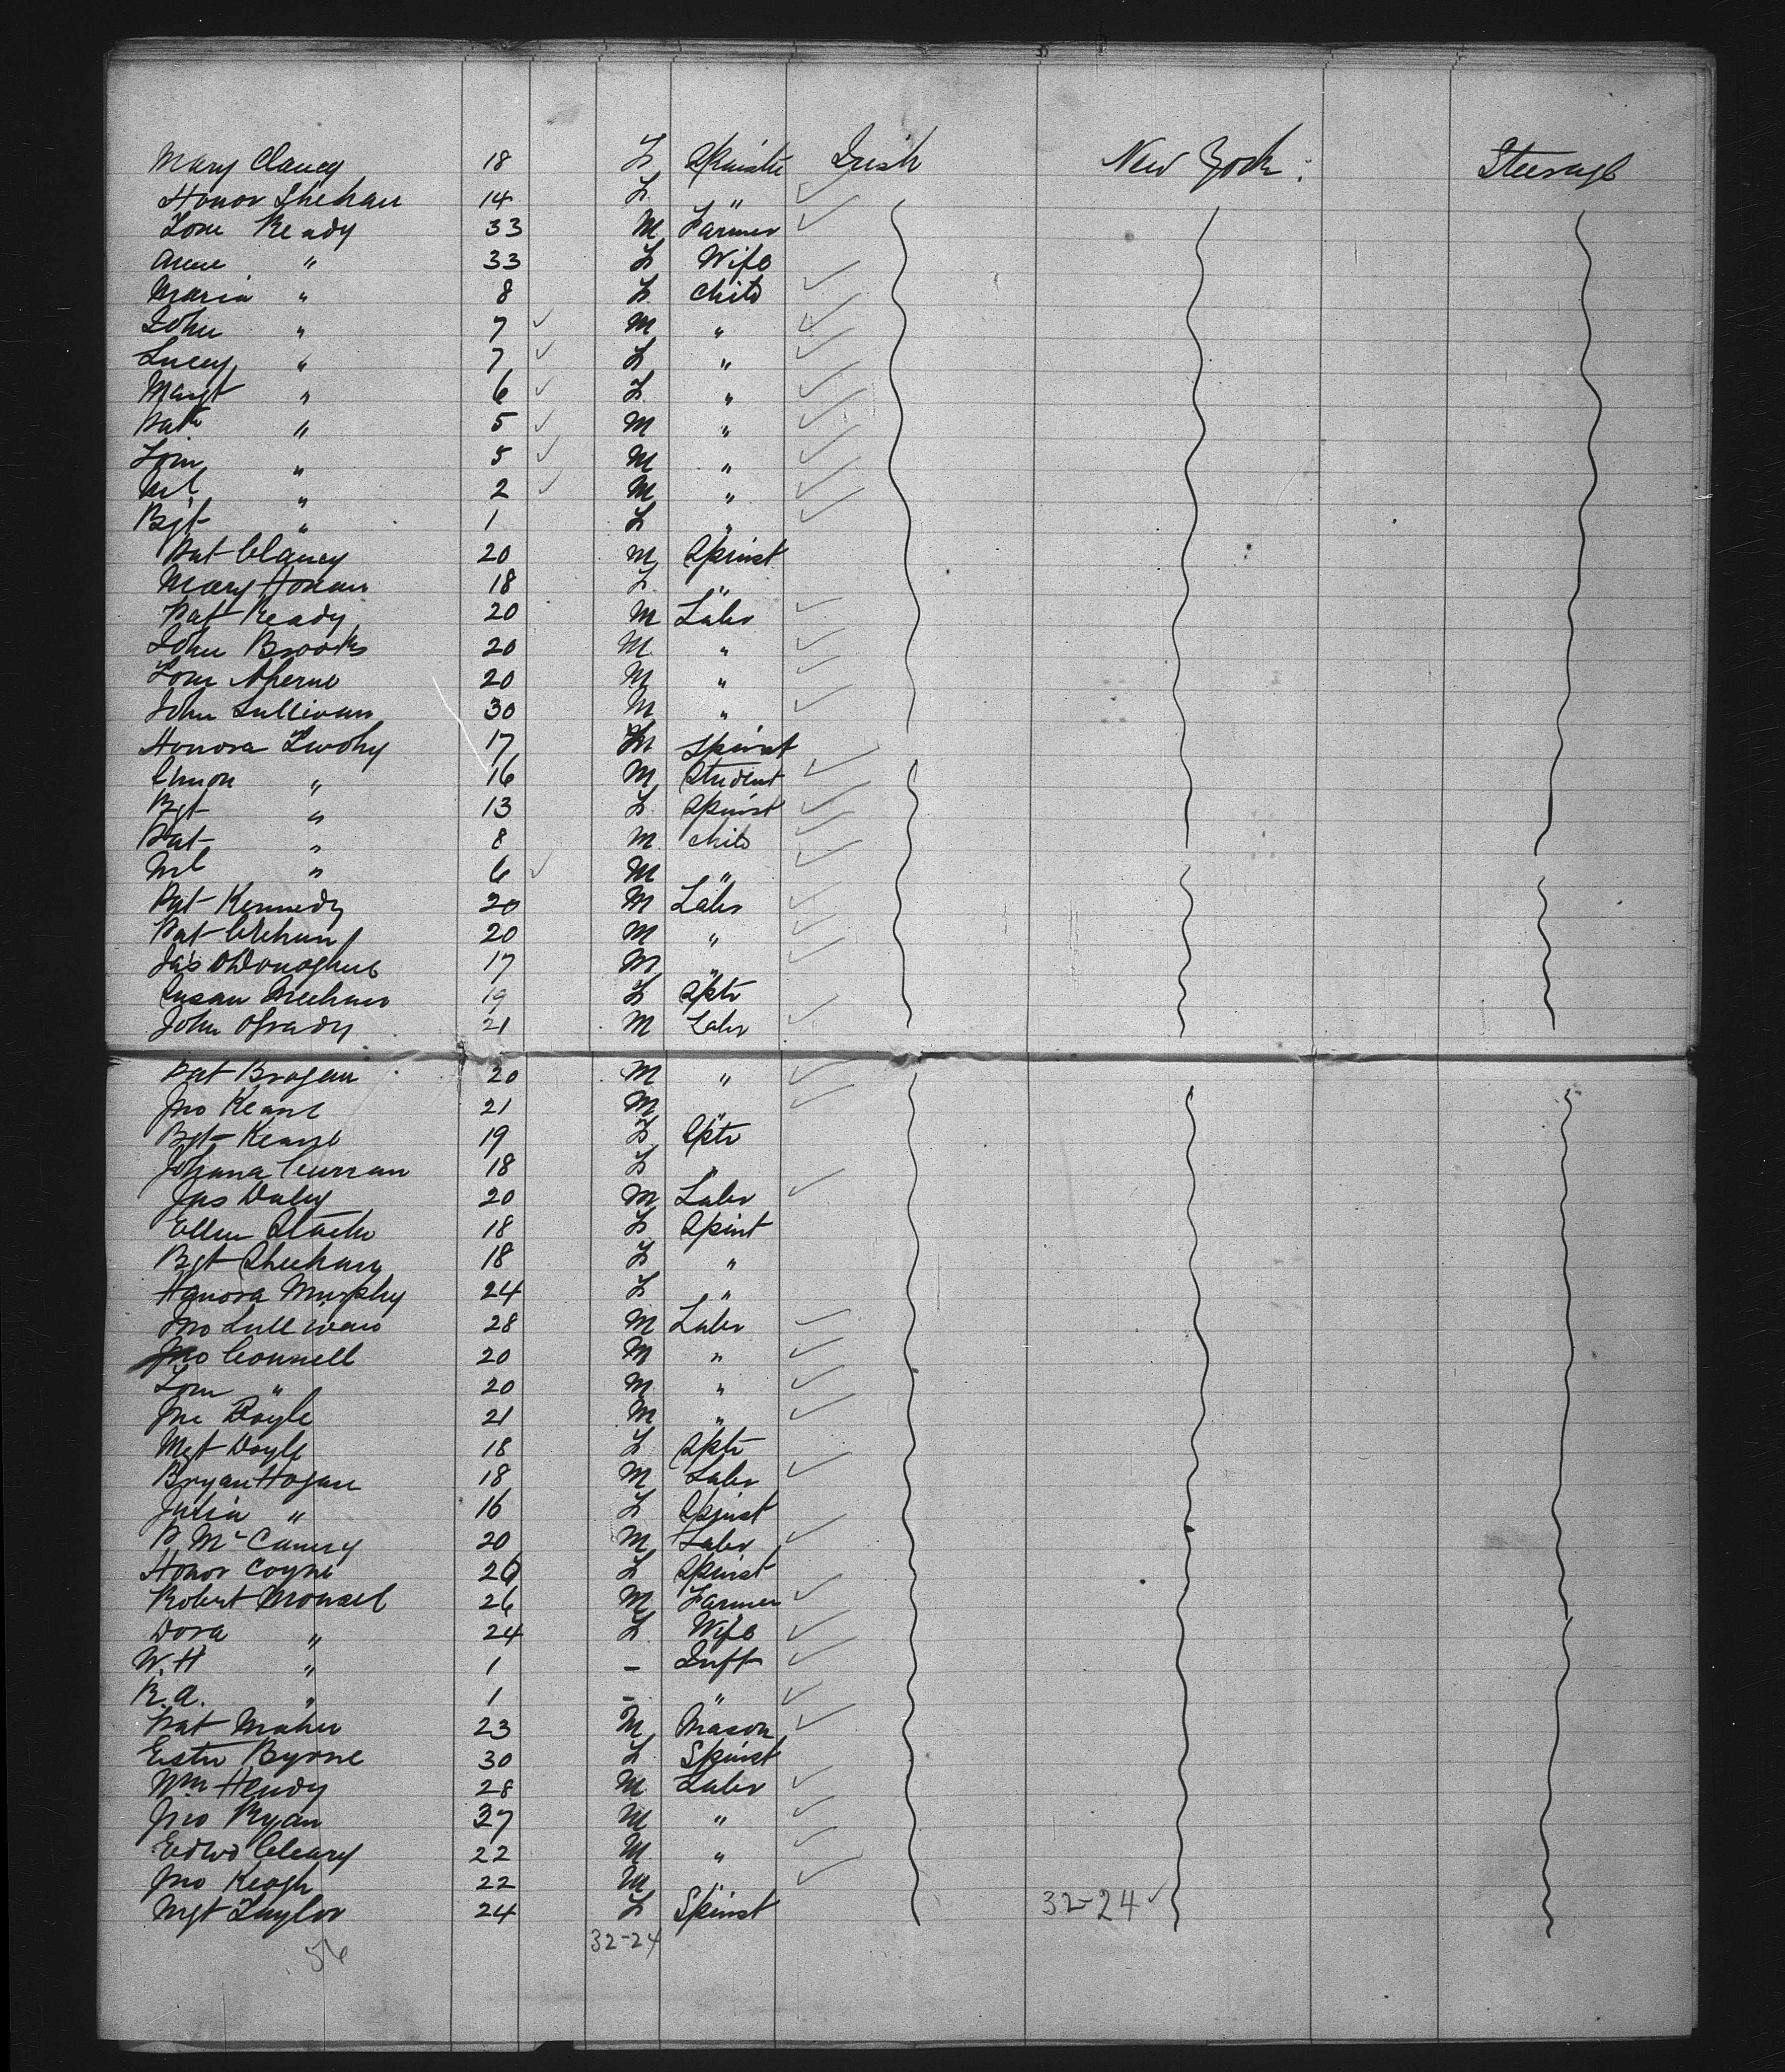 Mary Clancy 18 F Spinster Irish New York. Steerage
Honor Shehan 14 F "
Tom Ready 33 M Farmer
Anne " 33 F Wife
Maria " 8 F Child
John " 7 M "
Lucey " 7 F "
Margt " 6 F "
Patk " 5 M "
Tom " 5 M "
Ml " 2 M "
Bgt " 1 F "
Pat Clancy 20 M Spinst
Mary Honan 18 F "
Pat Ready 20 M Labr
John Brooks 20 M "
Tom Aherne 20 M "
John Sullivan 30 M "
Honora Twohy 17 Spinst
Simon " 16 M Student
Bgt " 13 F Spinst
Pat " 8 M Child
Ml " 6 M "
Pat Kennedy 20 M Labr
Pat Crehan 20 M "
Jas O'Donoghue 17 M "
Susan Meehan 19 F Sptr
John OGrady 21 M Labr
Pat Brogan 20 M "
Jno Keane 21 M "
Bgt Keane 19 F Sptr
Johana Curran 18 F "
Jas Daley 20 M Labr
Ellen Stack 18 F Spinst
Bgt Sheehan 18 F "
Hanora Murphy 24 F "
Jno Sullivan 28 M Labr
Jno Connell 20 M "
Tom " 20 M "
Jno Doyle 21 M "
Mgt Doyle 18 F Sptr
Bryan Hogan 18 M Labr
Julia " 16 F Spinst
P. McCamery 20 M Labr
Honor Coyne 20 F Spinst
Robert Monsel 26 M Farmer
Dora " 24 F Wife
W. H " 1 - Inft
R. A. " 1 - "
Pat Maher 23 M Mason
Ester Byrne 30 F Spinst
Wm Hendy 28 M Labr
Jno Ryan 37 M "
Edwd Cleary 22 M "
Jno Keogh 22 M "
Mgt Taylor 24 F Spinst 32-24
56 32-24